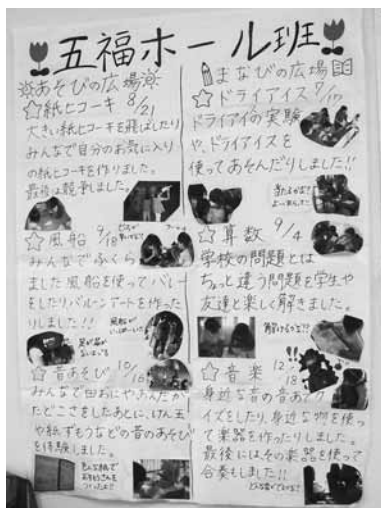 五福ホール班
あそびの広場
☆紙ヒコーキ 8/21
大きい紙ヒコーキを飛ばしたり
みんなで自分のお気に入り
の紙ヒコーキを作りました。
最後は競争しました。
☆風船 9/18
みんなでふくら
ました風船を使ってバレー
をしたりバルーンアートを作った
りしました!!
風船が
いっぱーい
☆昔あそび 10/16
みんなで田おにやあんたが
たどこさをしたあとに、けん玉
や紙ずもうなどの昔のあそび
を体験しました。
まなびの広場
☆ドライアイス 7/17
ドライアイスの実験
や、ドライアイスを
使ってあそんだりしました!!
☆算数 9/4
学校の問題とは
ちょっと違う問題を学生や
友達と楽しく解きました。
解けるかな??
☆音楽 12/18
身近な音の音あてク
イズをしたり、身近な物を使っ
て楽器を作ったりしました。
最後にはその楽器を使って
合奏もしました!!